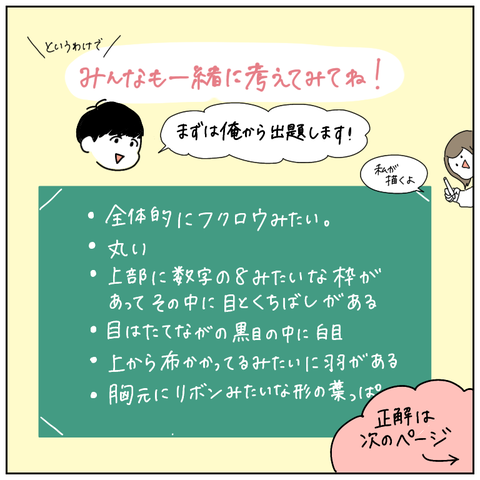 というわけで
みんなも一緒に考えてみてね!
まずは俺から出題します!
私が
描くよ
• 全体的にフクロウみたい。
• 丸い
• 上部に数字の8みたいな枠が
あってその中に目とくちばしがある
• 目はたてながの黒目の中に白目
• 上から布かかってるみたいに羽がある
• 胸元にリボンみたいな形の葉っぱ。
正解は
次のページ